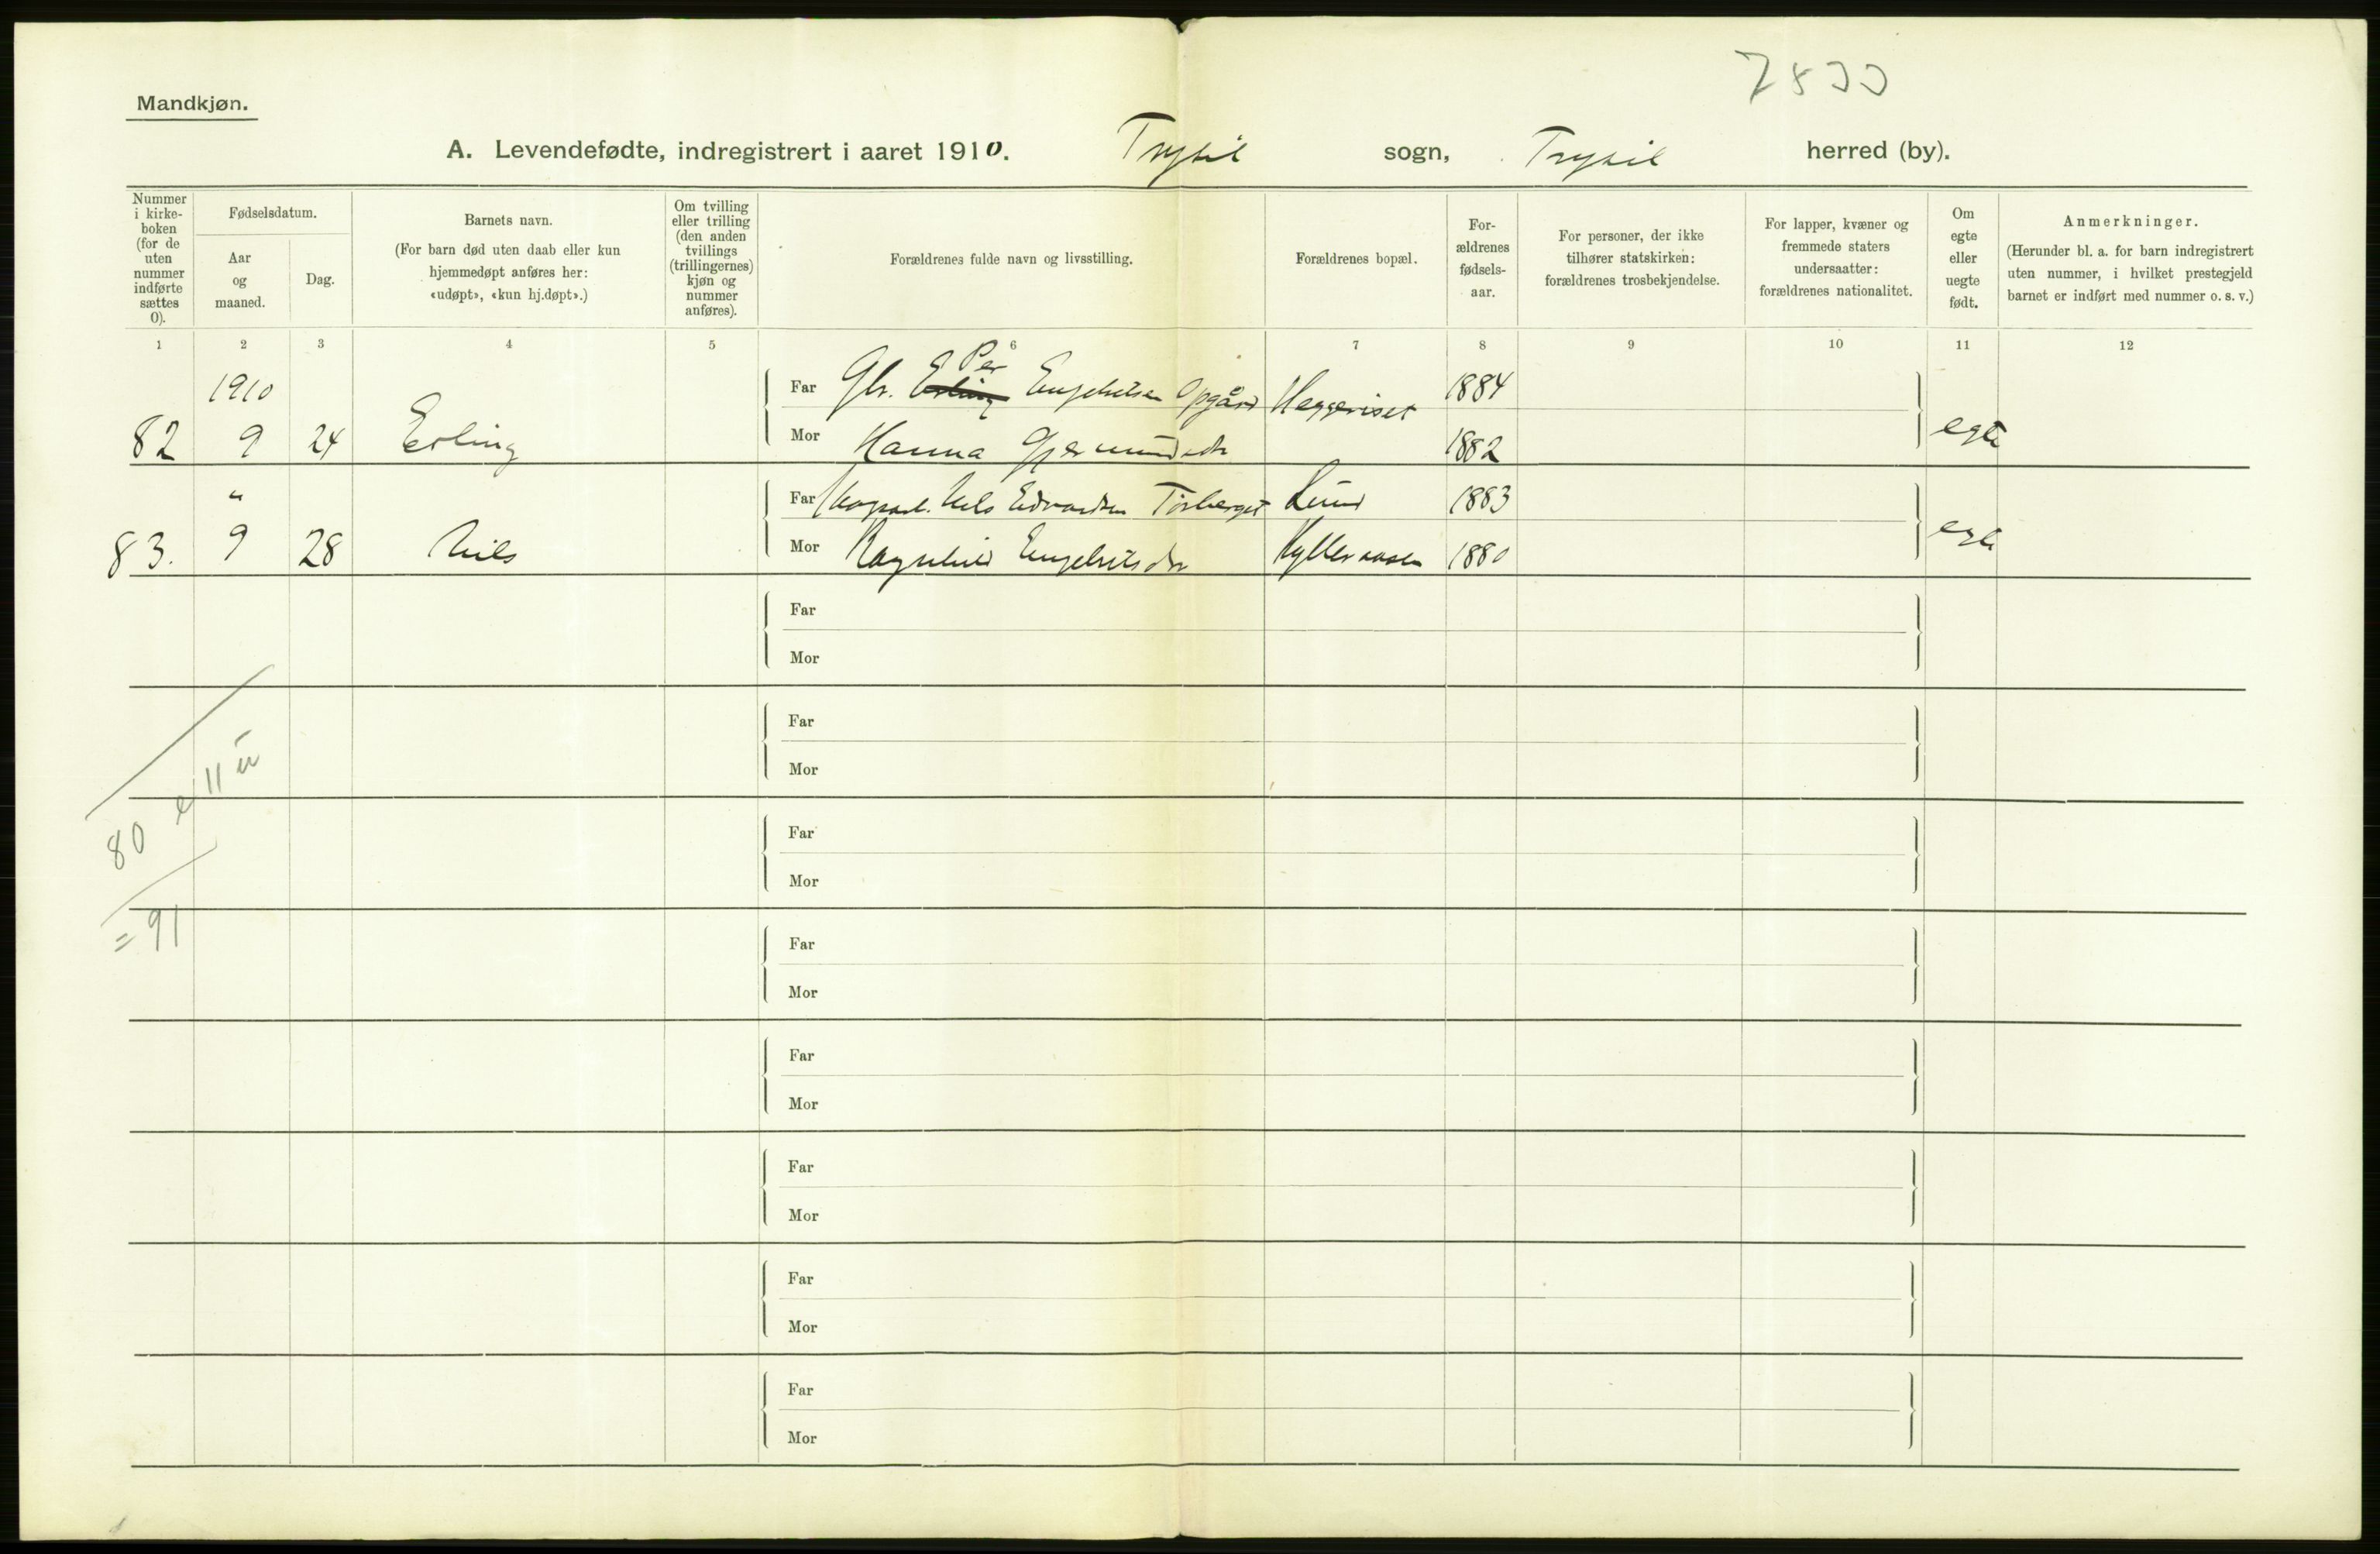 7833
Mandkjøn.
A. Levendefødte, indregistrert i aaret 1910. Trysil sogn, Trysil herred (by).
Nummer i kirke- boken (for de uten nummer indførte sættes 0).
Fødselsdatum.
Aar og maaned.
Dag.
Barnets navn.
(For barn død uten daab eller kun hjemmedøpt anføres her: «udøpt», «kun hj.døpt».)
Om tvilling eller trilling (den anden tvillings (trillingernes) kjøn og nummer anføres).
Forældrenes fulde navn og livsstilling.
Forældrenes bopæl.
For- ældrenes fødsels- aar.
For personer, der ikke tilhører statskirken: forældrenes trosbekjendelse.
For lapper, kvæner og fremmede staters undersaatter: forældrenes nationalitet.
Om egte eller uegte født.
Anmerkninger.
(Herunder bl. a. for barn indregistrert uten nummer, i hvilket prestegjeld barnet er indført med nummer o. s. v.)
1 2 3 4 5 6 7 8 9 10 11 12
1910
Per
Far Gbr. Erling Engebretsen Opgård Heggeriset 1884
82 9 24 Erling egte
Mor Hanna Gjermundsdtr 1882
"
Far Nils Edvardsen Torberget Lund 1883
83. 9 28 Nils egte
Mor Ragnhild Engebretsdtr 1880
Far
Mor
Far
Mor
Far
Mor
Far
Mor
Far
Mor
Far
Mor
Far
Mor
Far
Mor
80 e 11 u
= 91